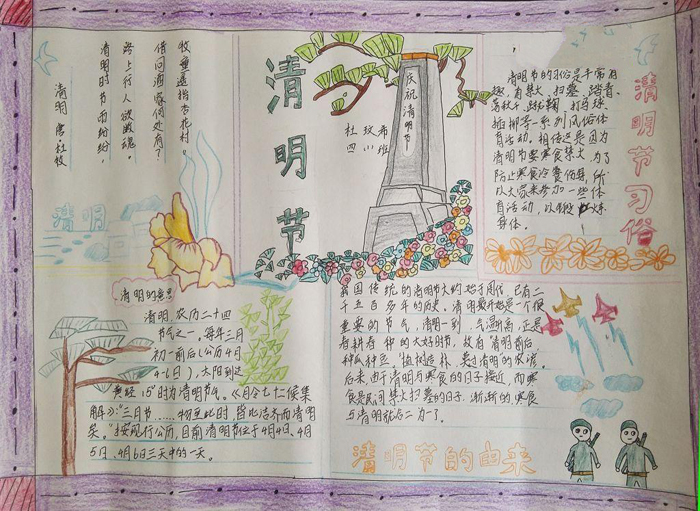 清明 唐 杜牧
清明时节雨纷纷，
路上行人欲断魂。
借问酒家何处有？
牧童遥指杏花村。
清明
清明节
庆祝清明节
杜牧希
四川班
清明节习俗
清明节的习俗是丰富有
趣，有禁火、扫墓、踏青、
荡秋千、蹴鞠、打马球、
插柳等一系列风俗体
育活动。相传这是因为
清明节要寒食禁火，为了
防止寒食冷餐伤身，所
以大家来参加一些体
育活动，以锻炼
身体。
清明的意思
清明，农历二十四
节气之一。每年三月
初一前后(公历4月
4-6日)，太阳到达
黄经15°时为清明节气。《月令七十二候集
解》："三月节……物至此时，皆以洁齐而清明
矣。"按现行公历，目前清明节位于4月4日、4月
5日、4月6日三天中的一天。
我国传统的清明节大约始于周代，已有二
千五百多年的历史。清明最开始是一个很
重要的节气，清明一到，气温升高，正是
春耕春种的大好时节，故有"清明前后，
种瓜种豆"。"植树造林，莫过清明"的农谚。
后来，由于清明与寒食的日子接近，而寒
食是民间禁火扫墓的日子，渐渐的，寒食
与清明就合二为一了。
清明节的由来